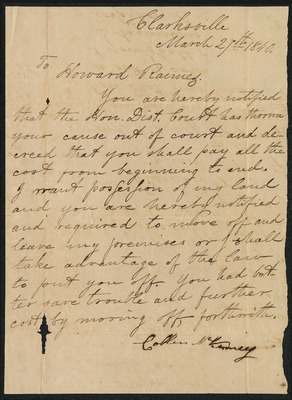 Clarksville
March 27th 1840.
To Howard Rainey.
You are hereby notified
that the Hon. Dist. Court has thrown
your cause out of court and de-
creed that you shall pay all the
cost from beginning to end.
I want possession of my land
and you are hereby notified
and required to move off and
leave my premises or I shall
take advantage of the law
to put you off. You had bet-
ter save trouble and further
cost by moving off forthwith.
Collin McKinney